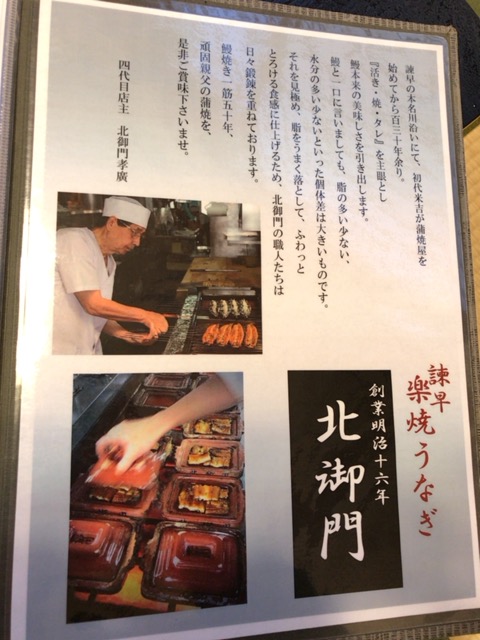 諫早の本名川沿いにて、初代米吉が蒲焼屋を
始めてから百三十年余り。
『活き・焼・タレ』を主眼とし
鰻本来の美味しさを引き出します。
鰻と一口に言いましても、脂の多い少ない、
水分の多い少ないといった個体差は大きいものです。
それを見極め、脂をうまく落として、ふわっと
とろける食感に仕上げるため、北御門の職人たちは
日々鍛錬を重ねております。
鰻焼き一筋五十年、
頑固親父の蒲焼を、
是非ご賞味下さいませ。
四代目店主 北御門孝廣
諫早
楽焼うなぎ
創業明治十六年
北御門